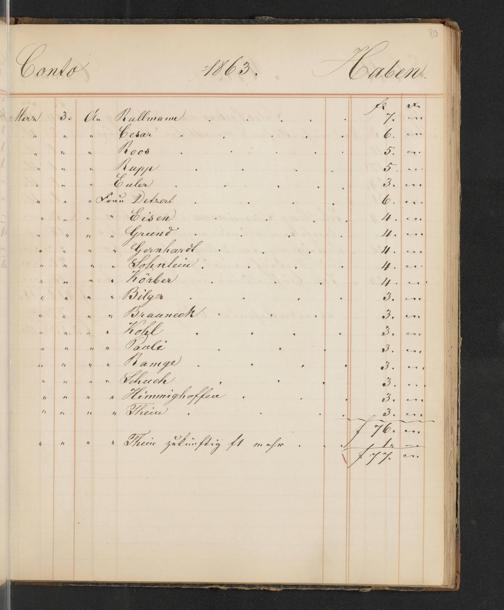 80
Conto 1863. Haben
fl. xr.
März 3. An Rullmann 7. "
" " " Cesar 6. "
" " " Roos 5. "
" " " Rupp 5. "
" " " Euler 3. "
" " " Frau Detzert 6. "
" " " " Eisen 4. "
" " " " Grund 4. "
" " " " Gernhardt 4. "
" " " " Sohnlein 4. "
" " " " Körber 4. "
" " " " Bilger 3. "
" " " " Brauneck 3. "
" " " " Kohl 3. "
" " " " Pauli 3. "
" " " " Ramge 3. "
" " " " Schuch 3. "
" " " " Himmighoffen 3. "
" " " " Thein 3. "
f 76. "
" " " " Thein zukünftig f1 mehr 1. "
f 77. "